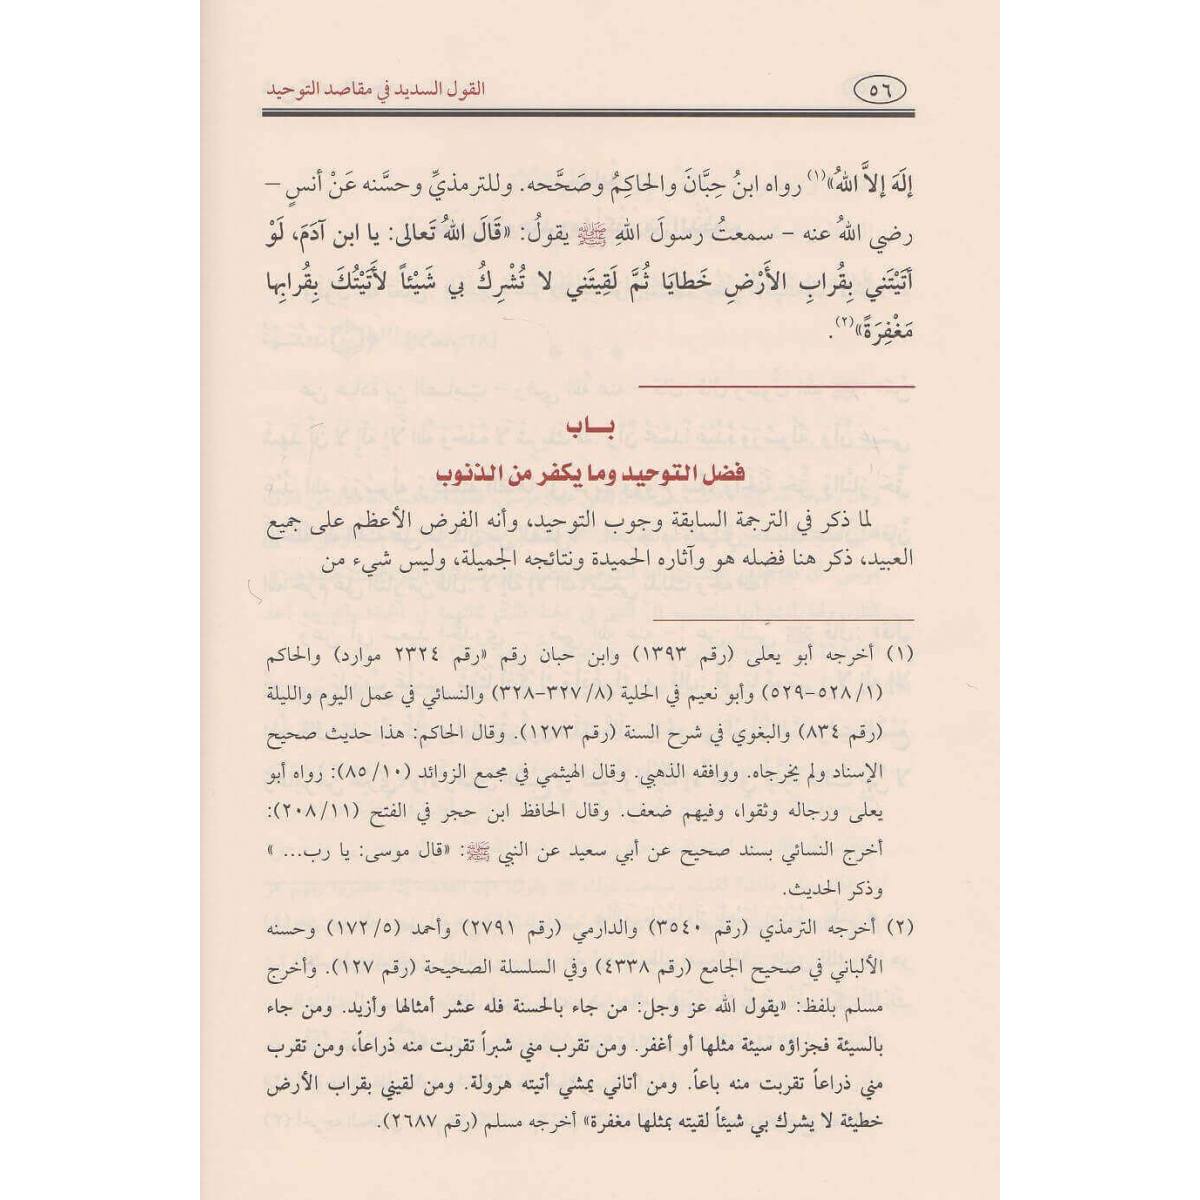 ٥٦
القول السديد في مقاصد التوحيد
إلَهَ إلاَّ اللهُ»(١) رواه ابنُ حِبَّانَ والحاكِمُ وصَحَّحه. وللترمذيِّ وحسَّنه عَنْ أنسٍ –
رضي اللهُ عنه – سمعتُ رسولَ اللهِ ﷺ يقولُ: «قَالَ اللهُ تَعالى: يا ابن آدَمَ، لَوْ
أتَيْتَني بِقُرابِ الأَرْضِ خَطايَا ثُمَّ لَقِيتَني لا تُشْرِكُ بي شَيْئاً لأتَيْتُكَ بِقُرابِها
مَغْفِرَةً»(٢).
بـاب
فضل التوحيد وما يكفر من الذنوب
لما ذكر في الترجمة السابقة وجوب التوحيد، وأنه الفرض الأعظم على جميع
العبيد، ذكر هنا فضله هو وآثاره الحميدة ونتائجه الجميلة، وليس شيء من
(١) أخرجه أبو يعلى (رقم ١٣٩٣) وابن حبان رقم «رقم ٢٣٢٤ موارد) والحاكم
(١/ ٥٢٨-٥٢٩) وأبو نعيم في الحلية (٨/ ٣٢٧-٣٢٨) والنسائي في عمل اليوم والليلة
(رقم ٨٣٤) والبغوي في شرح السنة (رقم ١٢٧٣). وقال الحاكم: هذا حديث صحيح
الإسناد ولم يخرجاه. ووافقه الذهبي. وقال الهيثمي في مجمع الزوائد (١٠/ ٨٥): رواه أبو
يعلى ورجاله وثقوا، وفيهم ضعف. وقال الحافظ ابن حجر في الفتح (١١/ ٢٠٨):
أخرج النسائي بسند صحيح عن أبي سعيد عن النبي ﷺ: «قال موسى: يا رب... »
وذكر الحديث.
(٢) أخرجه الترمذي (رقم ٣٥٤٠) والدارمي (رقم ٢٧٩١) وأحمد (٥/ ١٧٢) وحسنه
الألباني في صحيح الجامع (رقم ٤٣٣٨) وفي السلسلة الصحيحة (رقم ١٢٧). وأخرج
مسلم بلفظ: «يقول الله عز وجل: من جاء بالحسنة فله عشر أمثالها وأزيد. ومن جاء
بالسيئة فجزاؤه سيئة مثلها أو أغفر. ومن تقرب مني شبراً تقربت منه ذراعاً، ومن تقرب
مني ذراعاً تقربت منه باعاً. ومن أتاني يمشي أتيته هرولة. ومن لقيني بقراب الأرض
خطيئة لا يشرك بي شيئاً لقيته بمثلها مغفرة» أخرجه مسلم (رقم ٢٦٨٧).